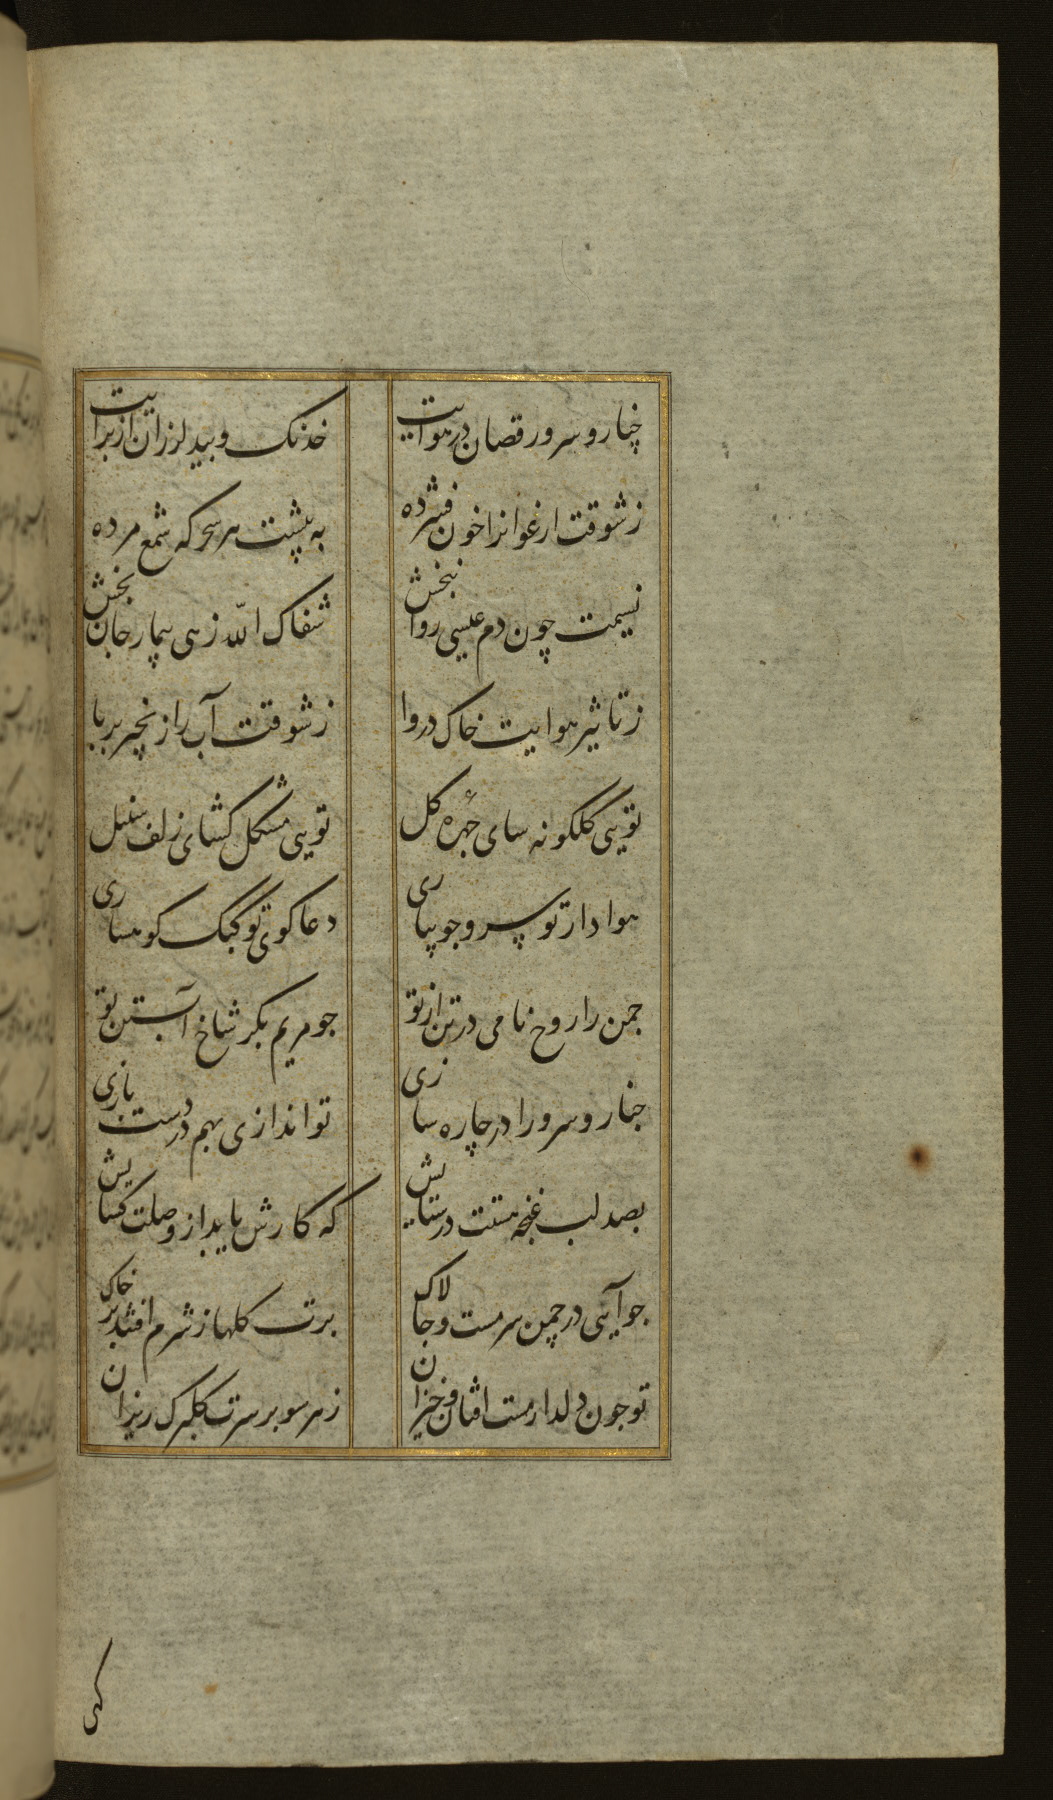 چنار و سرو رقصان در هوایت
خدنک و بید لرزان از برایت
ز شوقت ارغوانرا خون فشرده
به پیشت هر سحرکه شمع مرده
نسیمت چون دم عیسی روانبخش
شفاک الله زهی بیمار جان بخش
ز تاثیر هوایت خاک دروا
ز شوقت آب را زنجیر برپا
تویی کلکونه سای چهرهٔ کل
تویی مشکل کشای زلف سنبل
هوادار تو سرو جویباری
دعا کوی تو کبک کوهساری
چمن را روح نامی در تن از تو
چو مریم بکر شاخ آبستن تو
چنار و سرو را در چاره سازی
تو اندازی بهم در دست بازی
بصد لب غنچه هستت در ستایش
که کارش یابد از وصلت کشایش
چو آیی در چمن سرمست و چالاک
برت کلها ز شرم افتد بر خاک
تو چون دلدار مست افتان و خیزان
ز هر سو بر سرت کلبرک ریزان
کهی